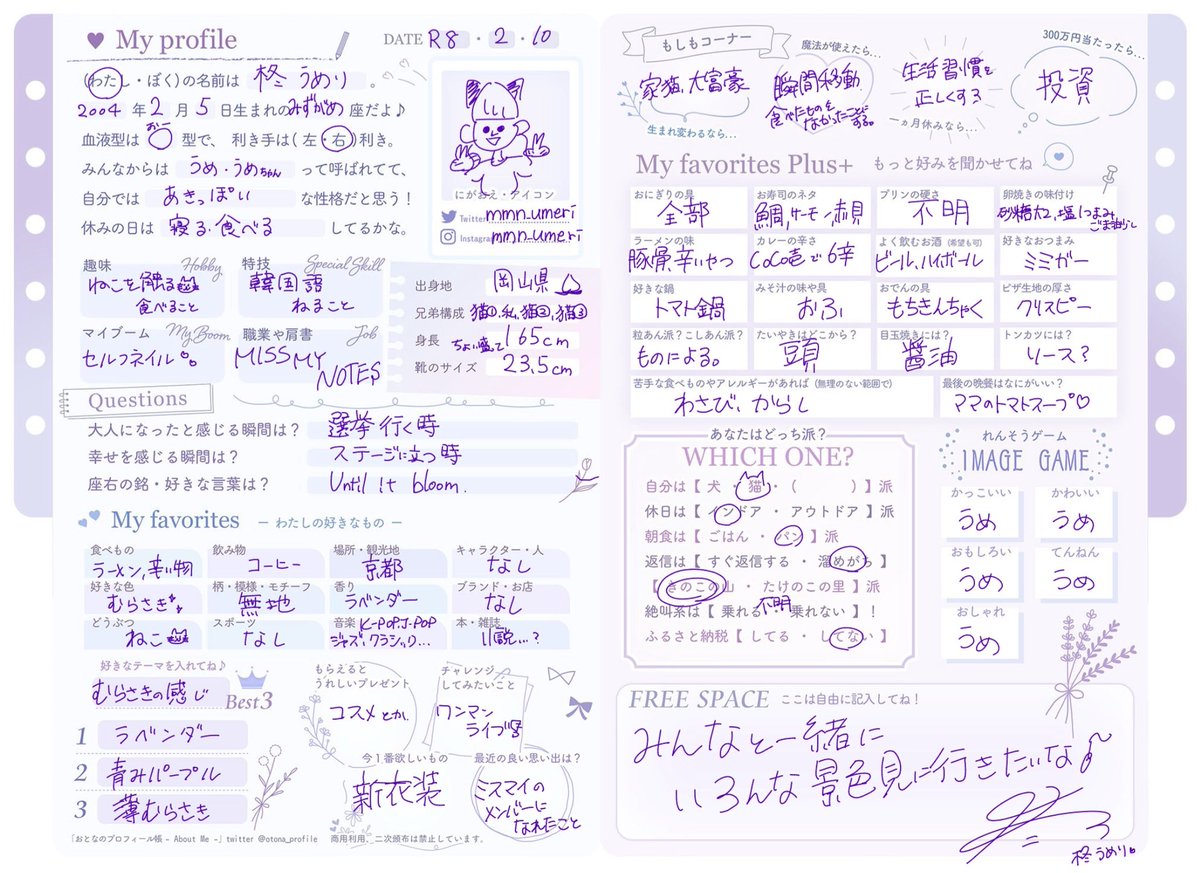 My profile
DATE R8・2・10
(わたし・ぼく)の名前は 柊 うめり 。
2004 年 2 月 5 日生まれの みずがめ 座だよ♪
血液型は おー 型で、 利き手は(左・右)利き。
みんなからは うめ・うめちゃん って呼ばれてて、
自分では あきっぽい な性格だと思う!
休みの日は 寝る・食べる してるかな。
にがおえ・アイコン
Twitter mmn_umeri
Instagram mmn_umeri
趣味 Hobby
ねこを触る
食べること
特技 Special Skill
韓国語
ねること
マイブーム My Boom
セルフネイル
職業や肩書 Job
MISS MY NOTES
出身地 岡山県
兄弟構成 猫①、私、猫②、猫③
身長 ちょい盛って 165cm
靴のサイズ 23.5cm
Questions
大人になったと感じる瞬間は? 選挙行く時
幸せを感じる瞬間は? ステージに立つ時
座右の銘・好きな言葉は? Until it bloom.
My favorites ― わたしの好きなもの ―
食べもの ラーメン、辛い物
飲み物 コーヒー
場所・観光地 京都
キャラクター・人 なし
好きな色 むらさき
柄・模様・モチーフ 無地
香り ラベンダー
ブランド・お店 なし
どうぶつ ねこ
スポーツ なし
音楽 K-POP J-POP
ジャズ、クラシック...
本・雑誌 小説...?
好きなテーマを入れてね♪
むらさきの感じ
Best3
1 ラベンダー
2 青みパープル
3 薄むらさき
もらえると
うれしいプレゼント
コスメとか、
チャレンジ
してみたいこと
ワンマン
ライブ
今1番欲しいもの
新衣装
最近の良い思い出は?
ミスマイの
メンバーに
なれたこと
「おとなのプロフィール帳 - About Me -」twitter @otona_profile 商用利用、二次頒布は禁止しています。
もしもコーナー
家猫、大富豪
生まれ変わるなら...
魔法が使えたら...
瞬間移動
食べたものを
なかったことに
する。
生活習慣を
正しくする
一ヵ月休みなら...
300万円当たったら...
投資
My favorites Plus+ もっと好みを聞かせてね
おにぎりの具 全部
お寿司のネタ 鯛,サーモン,赤貝
プリンの硬さ 不明
卵焼きの味付け 砂糖大2、塩1つまみ、
ごま油少し
ラーメンの味 豚骨、辛いやつ
カレーの辛さ CoCo壱で6辛
よく飲むお酒(希望も可) ビール、ハイボール
好きなおつまみ ミミガー
好きな鍋 トマト鍋
みそ汁の味や具 おふ
おでんの具 もちきんちゃく
ピザ生地の厚さ クリスピー
粒あん派?こしあん派? ものによる。
たいやきはどこから? 頭
目玉焼きには? 醤油
トンカツには? ソース?
苦手な食べものやアレルギーがあれば(無理のない範囲で)
わさび、からし
最後の晩餐はなにがいい?
ママのトマトスープ♡
あなたはどっち派?
WHICH ONE?
自分は【 犬 ・ 猫 ・ ( ) 】派
休日は【 インドア ・ アウトドア 】派
朝食は【 ごはん ・ パン 】派
返信は【 すぐ返信する ・ 溜めがち 】
【 きのこの山 ・ たけのこの里 】派
絶叫系は【 乗れる 不明 乗れない 】!
ふるさと納税【 してる ・ してない 】
れんそうゲーム
IMAGE GAME
かっこいい うめ
かわいい うめ
おもしろい うめ
てんねん うめ
おしゃれ うめ
FREE SPACE ここは自由に記入してね!
みんなと一緒に
いろんな景色見に行きたいな
柊うめり。